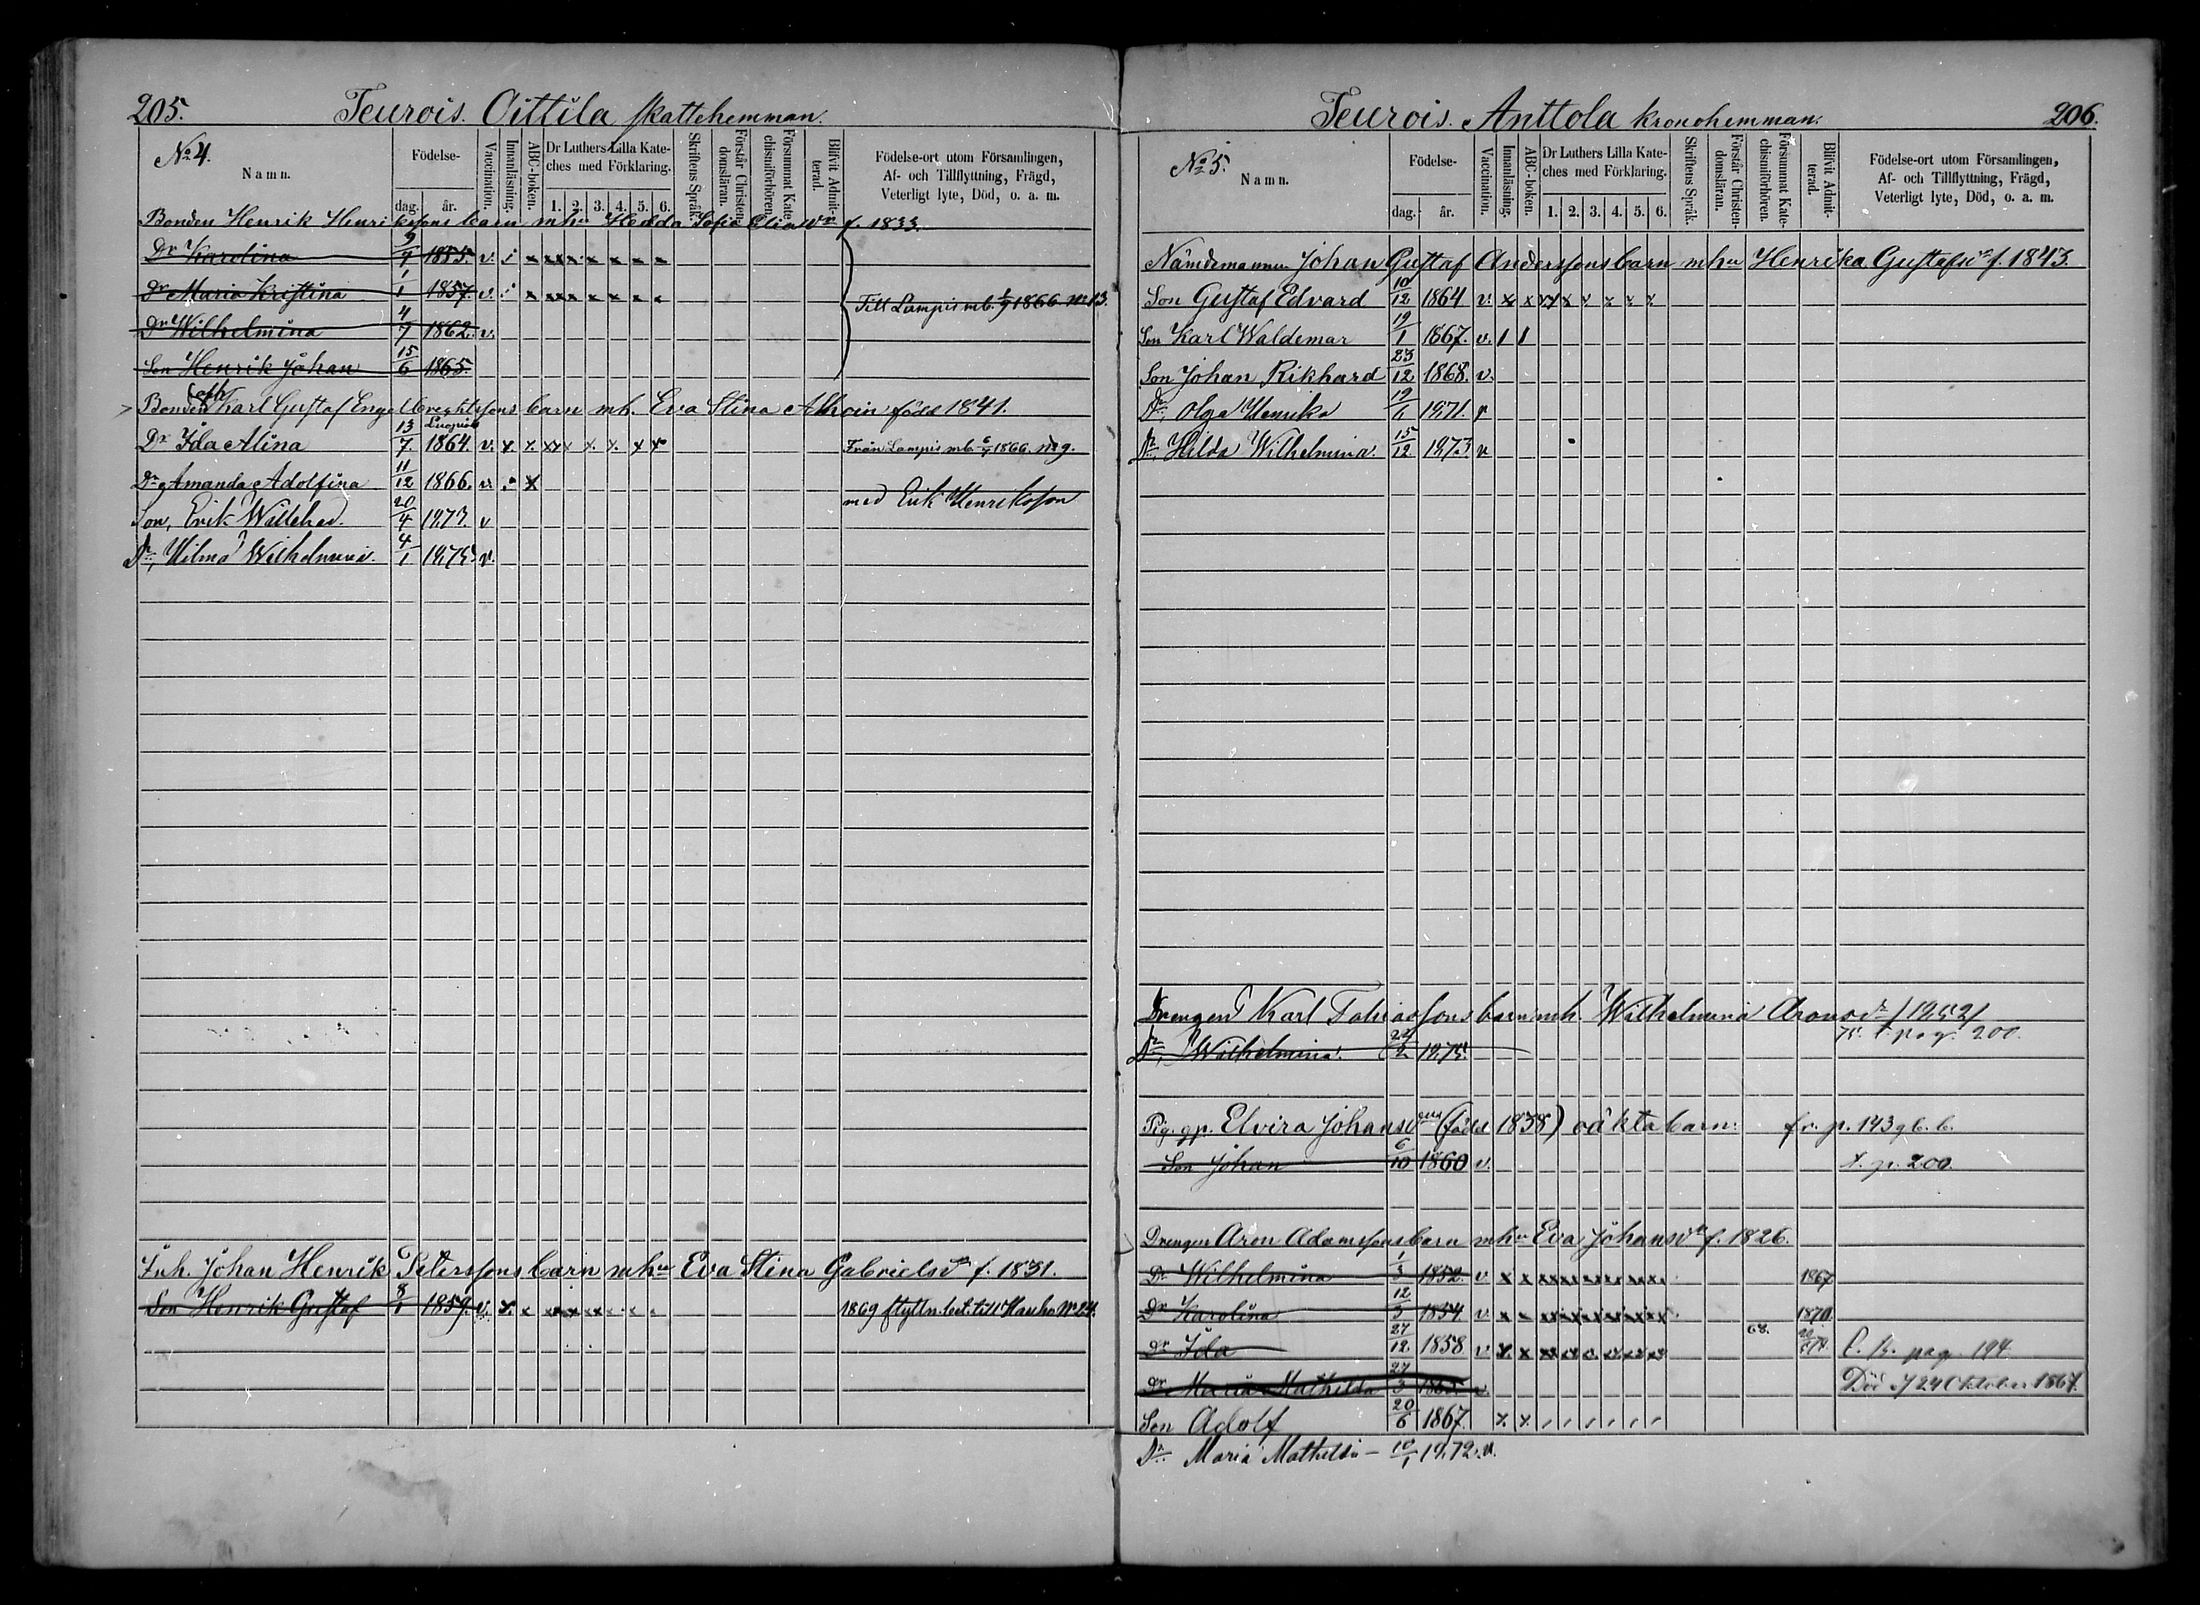 205. Teurois. Oittila skattehemman.
No 4.
Namn.
Födelse-
dag. år.
Vaccination.
Innanläsning.
ABC-boken.
Dr Luthers Lilla Kate-
ches med Förklaring.
1. 2. 3. 4. 5. 6.
Skriftens Språk.
Förstår Christen-
domsläran.
Försummat Kate-
chismiförhören.
Blifvit Admit-
terad.
Födelse-ort utom Församlingen,
Af- och Tillflyttning, Frägd,
Veterligt lyte, Död, o. a. m.
Bonden Henrik Henrikssons barn mhu Hedda Sofia Eliasdr f. 1833.
Dr Karolina 9/9 1855. v.
Dr Maria Kristina 1/1 1857. v. Till Lampis mb. 1/9 1866 No 13.
Dr Wilhelmina 4/7 1862. v.
Son Henrik Johan 15/6 1865.
Bonden Karl Gustaf Engelbrechtssons barn mh. Eva Stina Alhoin född 1841.
Dr Ida Alina 13/7. 1864. v. Från Lampis mb. 6/9 1866. No 9.
Dr Amanda Adolfina 11/12 1866. v. med Erik Henriksson
Son, Erik Willehad. 20/4 1873. v
Dr, Hilma Wilhelmina. 4/1 1875. v.
Inh. Johan Henrik Peterssons barn mhu Eva Stina Gabrielsdr f. 1831.
Son Henrik Gustaf 8/1 1859. v. 1869 flyttn.bet. till Hauho No 24.
Teurois. Anttola kronohemman. 206.
No 5.
Namn.
Födelse-
dag. år.
Vaccination.
Innanläsning.
ABC-boken.
Dr Luthers Lilla Kate-
ches med Förklaring.
1. 2. 3. 4. 5. 6.
Skriftens Språk.
Förstår Christen-
domsläran.
Försummat Kate-
chismiförhören.
Blifvit Admit-
terad.
Födelse-ort utom Församlingen,
Af- och Tillflyttning, Frägd,
Veterligt lyte, Död, o. a. m.
Nämdemannen Johan Gustaf Anderssons barn mhu Henrika Gustafsdr f. 1843.
Son Gustaf Edvard 10/12 1864 v.
Son Karl Waldemar 19/1 1867. v.
Son Johan Rikhard 23/12 1868. v.
Dr, Olga Henrika 19/6 1871. v
Dr, Hilda Wilhelmina. 15/12 1873 v
Drengen Karl Tobiassons barn mh. Wilhelmina Aronsdr /1852/
Dr, Wilhelmina. 24/2 1875. 75. t. pag. 200.
Pig. gp. Elvira Johansdr (född 1838) oäkta barn: fr. p. 193 g b. b.
Son Johan 6/10 1860 v. t. p. 200.
Drengen Aron Adamssons barn mhu Eva Johansdr f. 1826.
Dr Wilhelmina 1/3 1852. v 1867
Dr Karolina 12/3 1854. v. 1870.
Dr Ida 27/12. 1858 v 68. t. b. pag. 194
Dr Maria Mathilda 27/3 1865 v. Död d 24 Oktober 1867.
Son Adolf 20/6 1867.
Dr. Maria Mathilda – 10/1 1872. v.